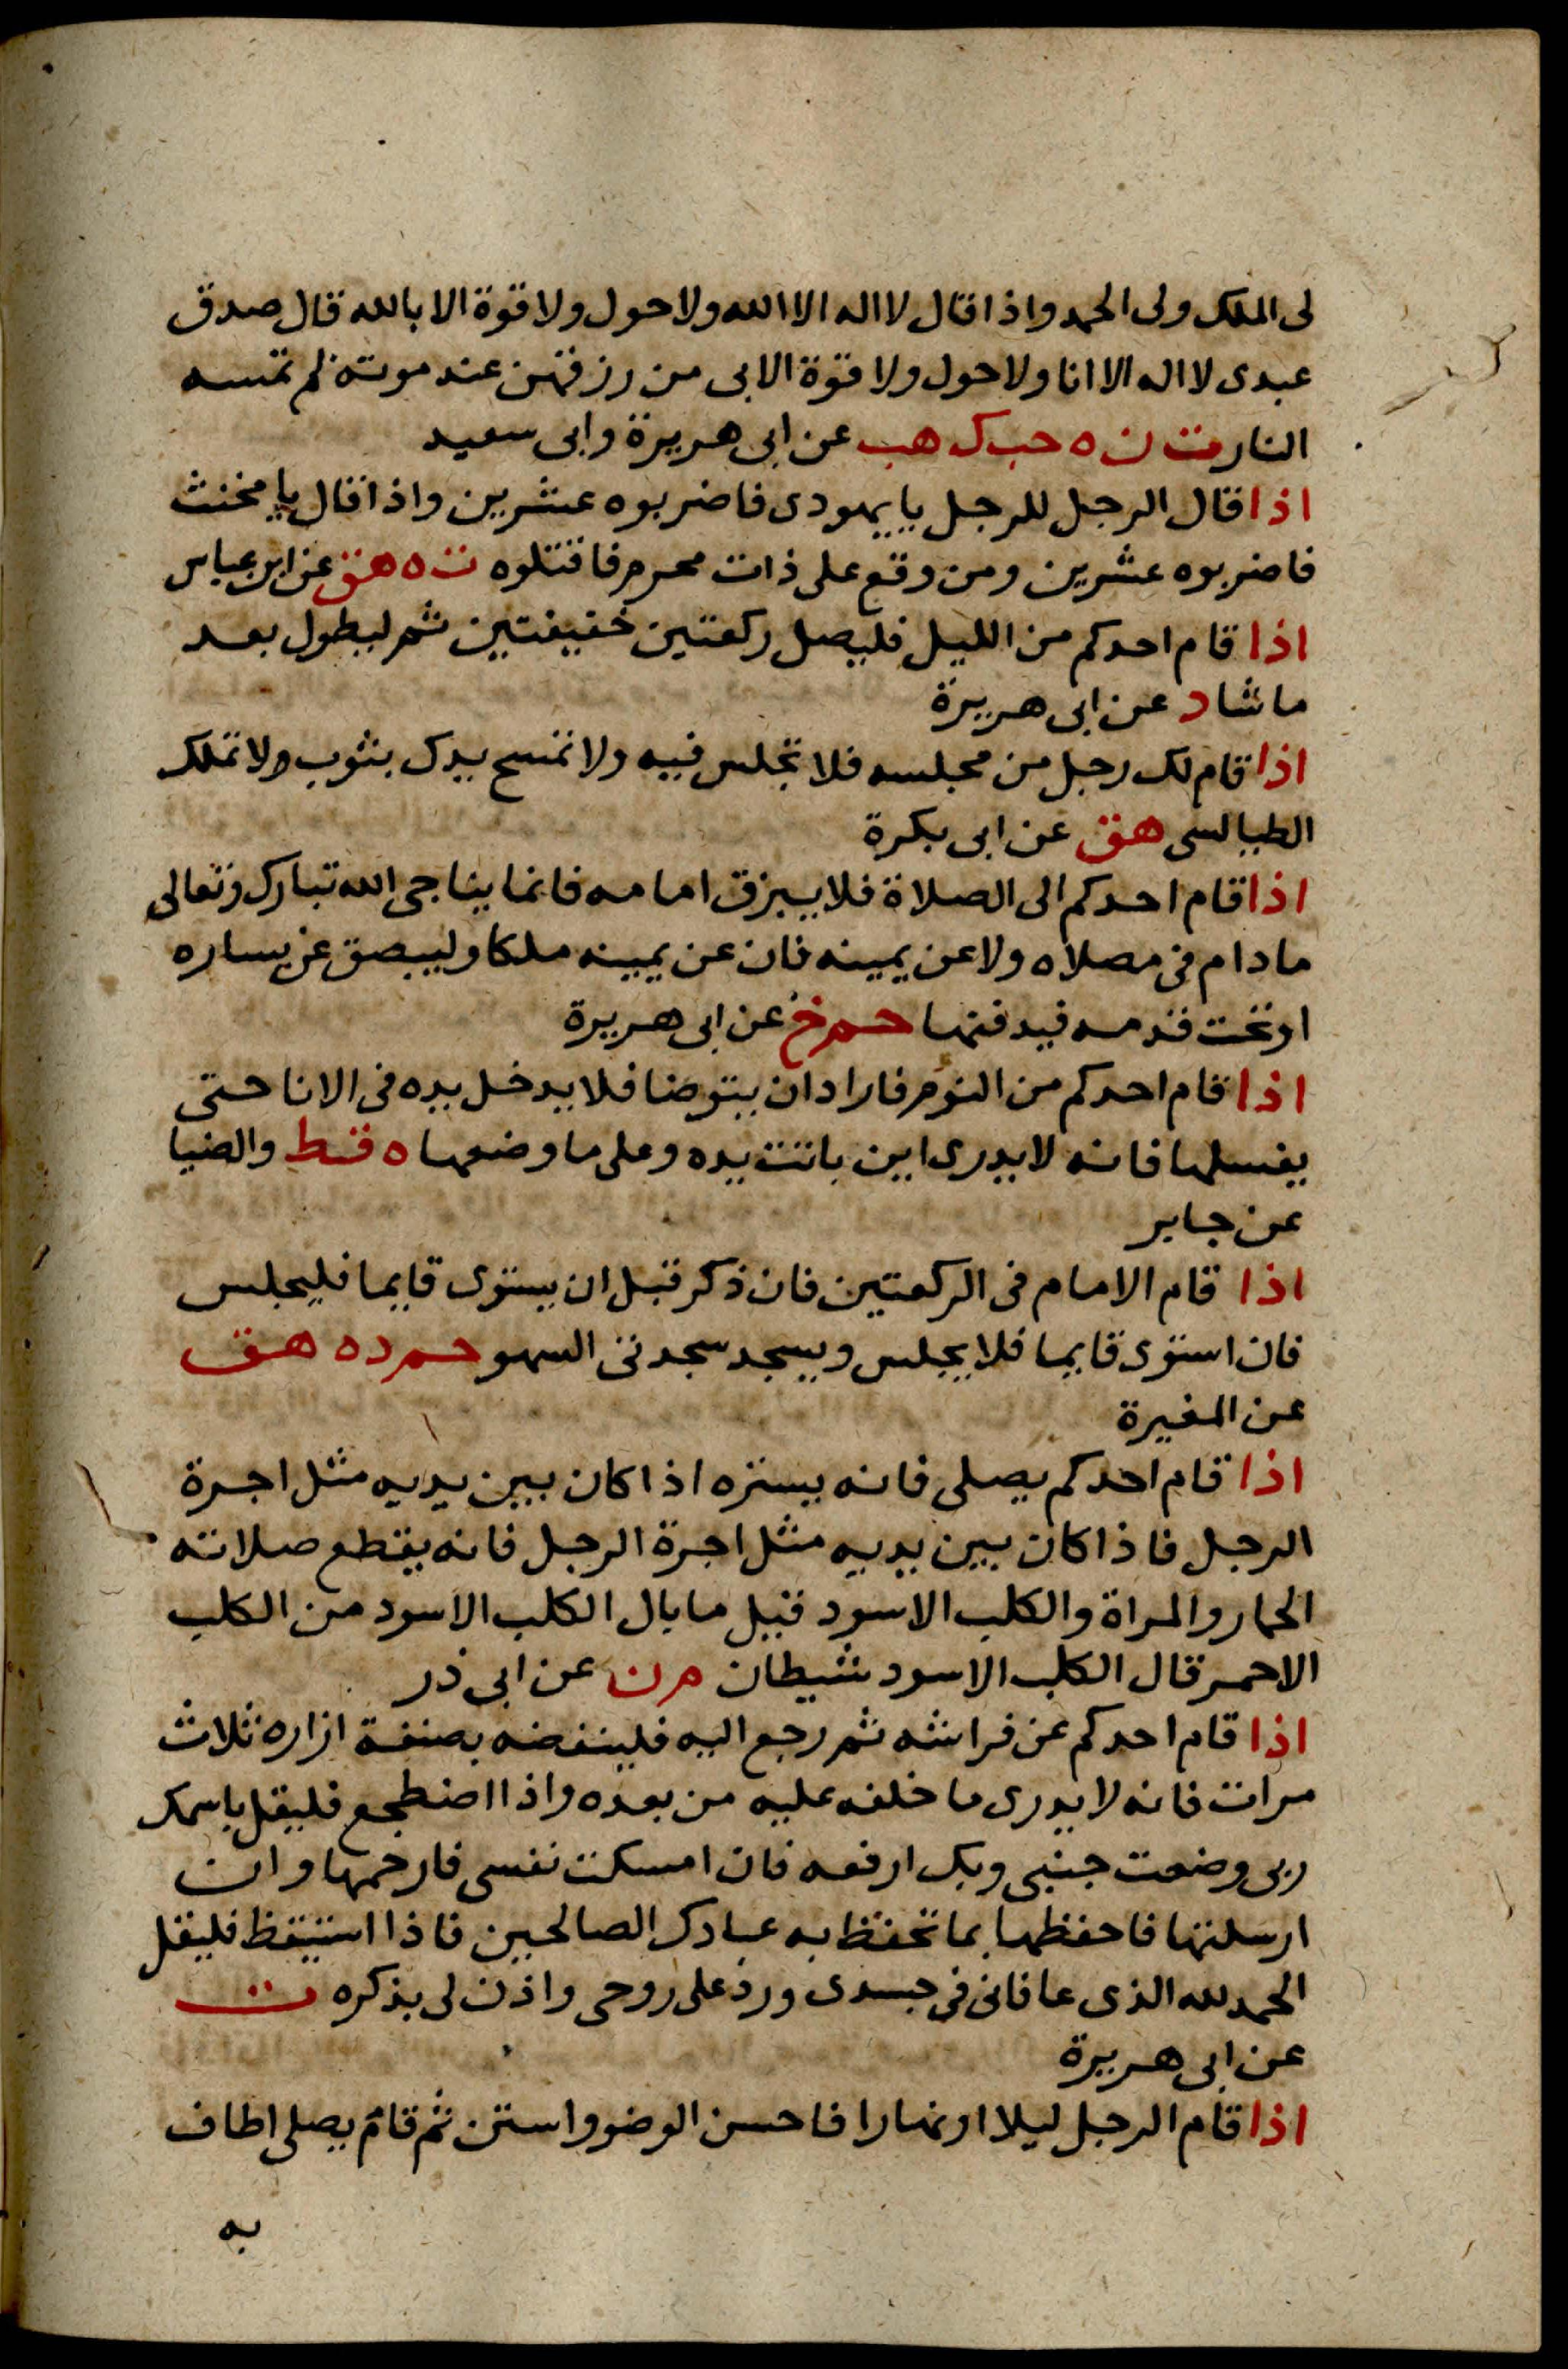 لى الملك ولى الحمد واذا قال لا اله الا الله ولا حول ولا قوة الا بالله قال صدق
عبدى لا اله الا انا ولا حول ولا قوة الا بى من رزقهن عند موته لم تمسه
النار ت ن ه حب ك هب عن ابى هريرة وابى سعيد
اذا قال الرجل للرجل يا يهودى فاضربوه عشرين واذا قال يا مخنث
فاضربوه عشرين ومن وقع على ذات محرم فاقتلوه ت ه هق عن ابن عباس
اذا قام احدكم من الليل فليصل ركعتين خفيفتين ثم ليطول بعد
ما شا د عن ابى هريرة
اذا قام لك رجل من مجلسه فلا تجلس فيه ولا تمسح يدك بثوب ولا تملك
الطيالسى هق عن ابى بكرة
اذا قام احدكم الى الصلاة فلا يبزق امامه فانما يناجى الله تبارك وتعالى
مادام فى مصلاه ولا عن يمينه فان عن يمينه ملكا وليبصق عن يساره
او تحت قدمه فيدفنها حم خ عن ابى هريرة
اذا قام احدكم من النوم فاراد ان يتوضا فلا يدخل يده فى الانا حتى
يغسلها فانه لا يدرى اين باتت يده وعلى ما وضعها ه قط والضيا
عن جابر
اذا قام الامام فى الركعتين فان ذكر قبل ان يستوى قايما فليجلس
فان استوى قايما فلا يجلس ويسجد سجدتى السهو حم د ه هق
عن المغيرة
اذا قام احدكم يصلى فانه يستره اذا كان بين يديه مثل اجرة
الرجل فاذا كان بين يديه مثل اجرة الرجل فانه يقطع صلاته
الحمار والمراة والكلب الاسود قيل ما بال الكلب الاسود من الكلب
الاحمر قال الكلب الاسود شيطان م ن عن ابى ذر
اذا قام احدكم عن فراشه ثم رجع اليه فلينفضه بصنفة ازاره ثلاث
مرات فانه لا يدرى ما خلفه عليه من بعده واذا اضطجع فليقل باسمك
ربى وضعت جنبى وبك ارفعه فان امسكت نفسى فارحمها وان
ارسلتها فاحفظها بما تحفظ به عبادك الصالحين فاذا استيقظ فليقل
الحمد لله الذى عافانى فى جسدى ورد على روحى واذن لى بذكره ت
عن ابى هريرة
اذا قام الرجل ليلا او نهارا فاحسن الوضو واستن ثم قام يصلى اطاف
به